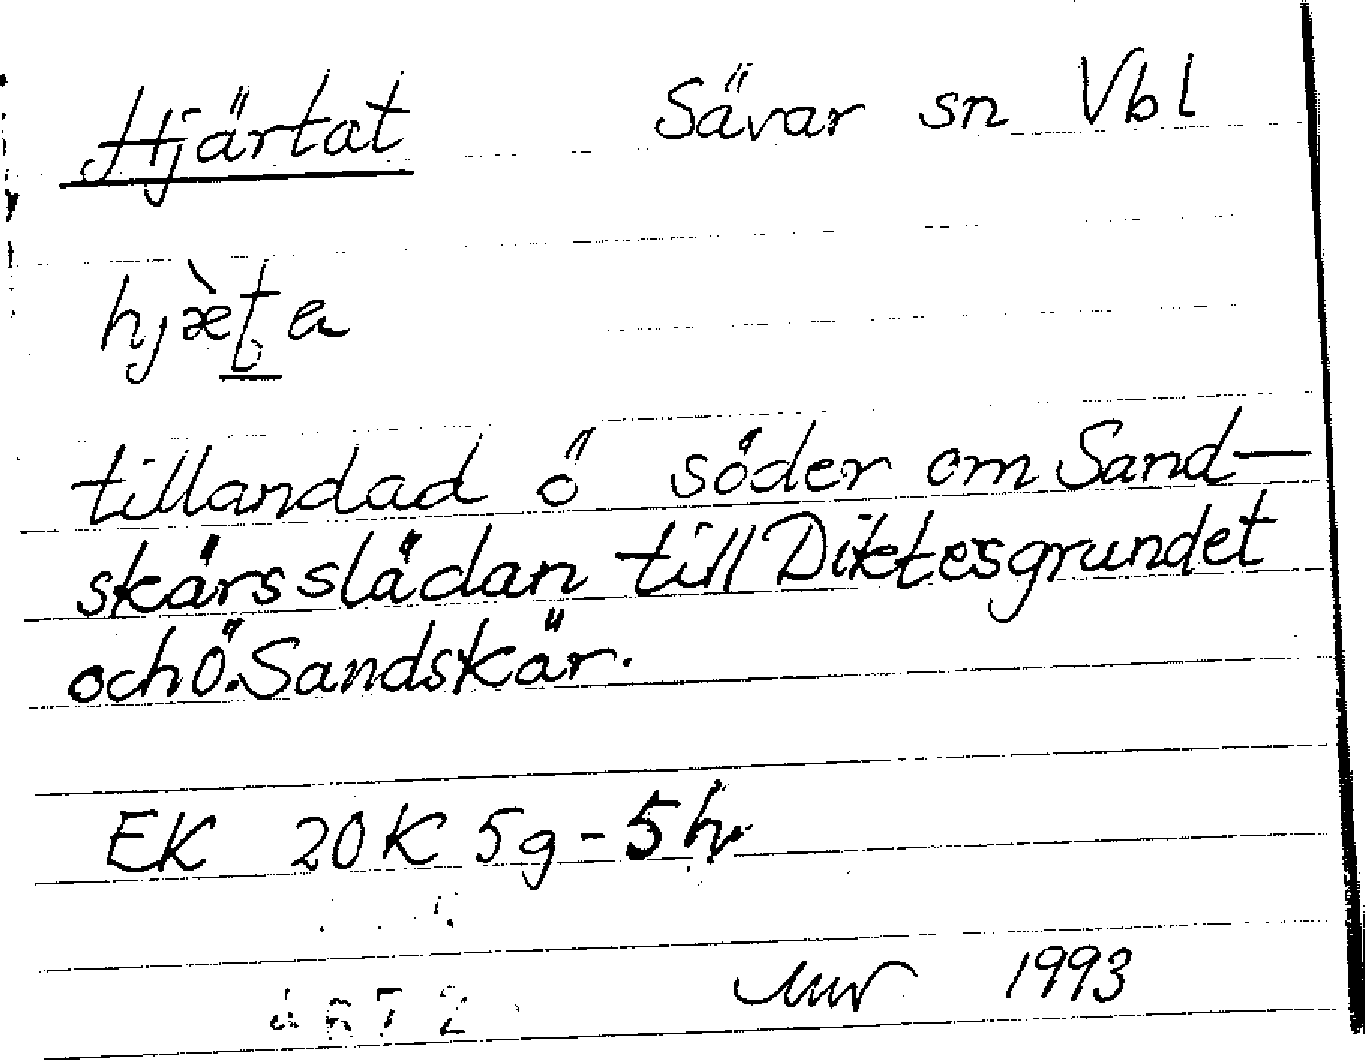 Hjärtat Sävar sn Vbl
tillandad ö söder om Sand-
skärsslädan till Diktesgrundet
och Ö. Sandskär.
EK 20K 5g-5h
1993